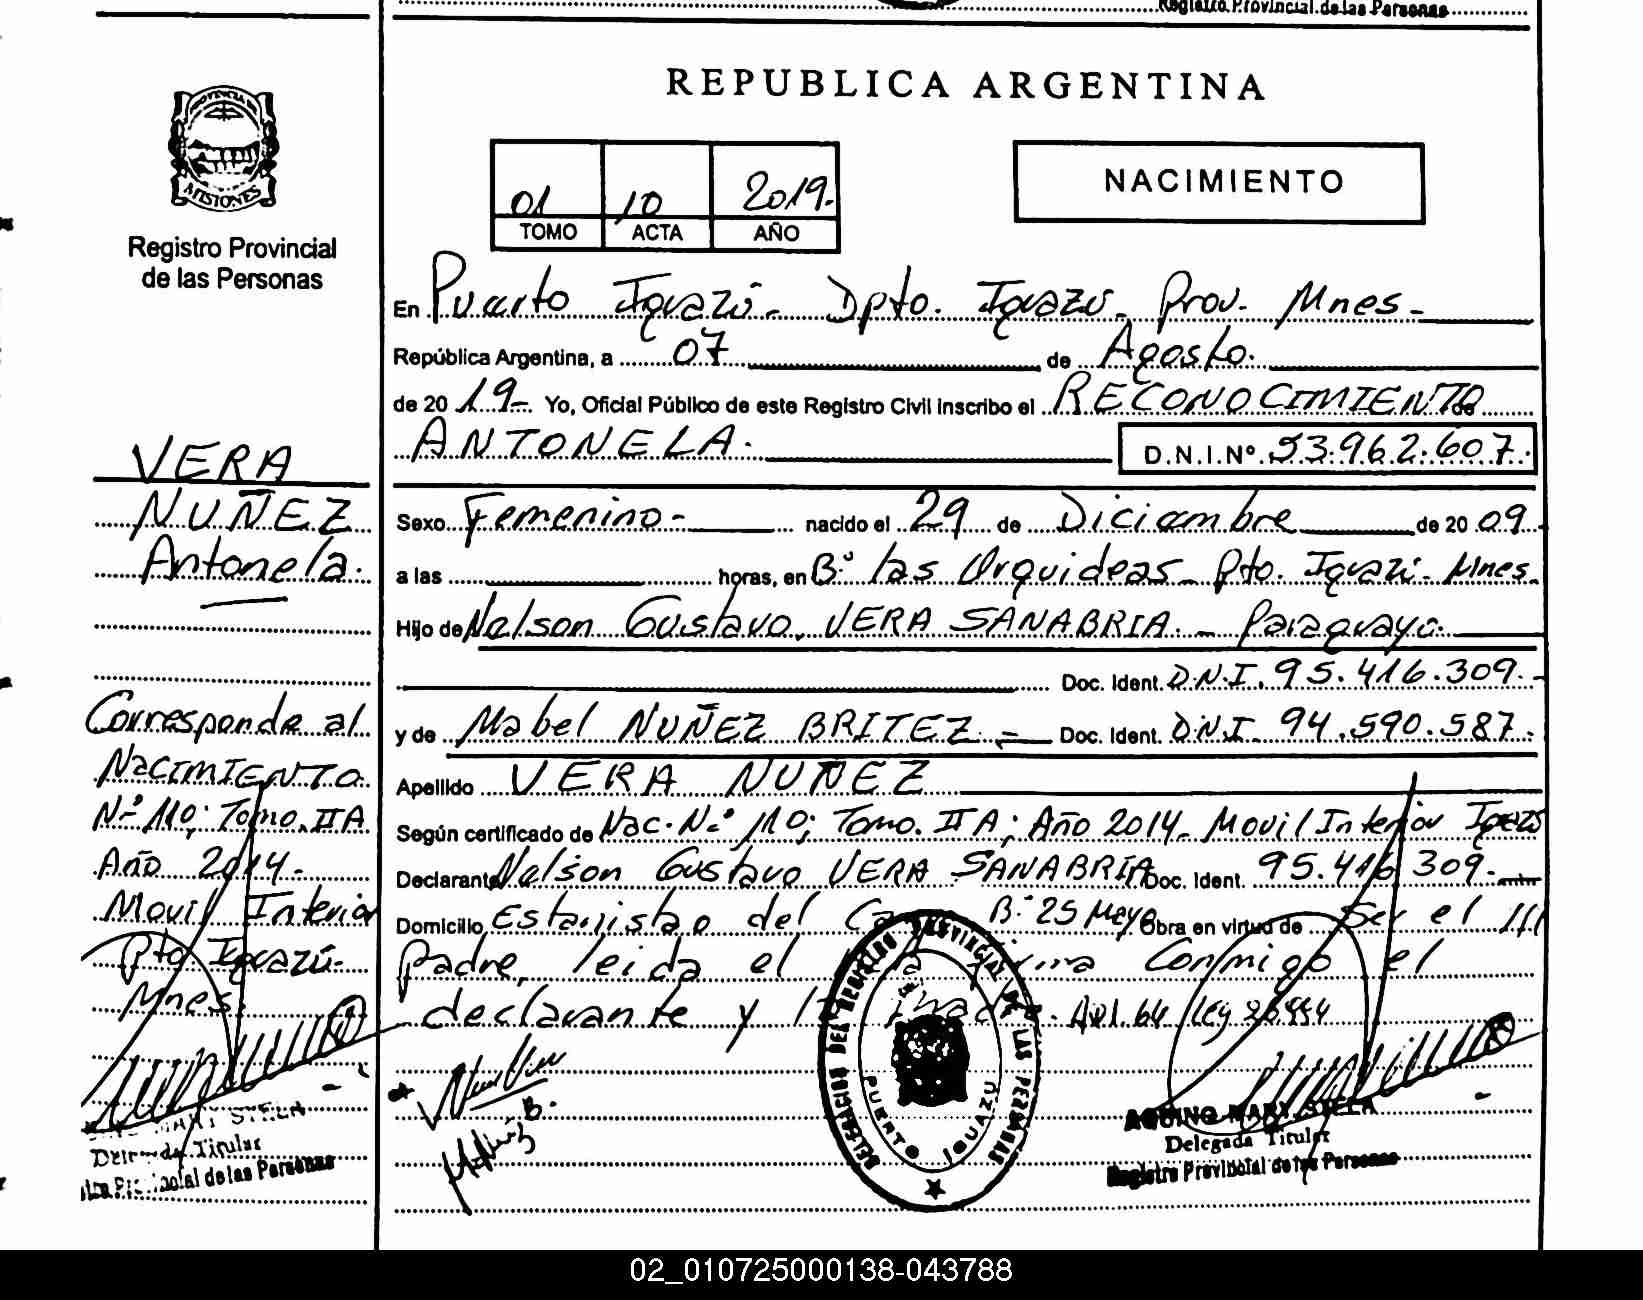 Registro Provincial de las Personas
REPUBLICA ARGENTINA
PROVINCIA DE
MISIONES
Registro Provincial
de las Personas
01 10 2019.
TOMO ACTA AÑO
NACIMIENTO
En Puerto Iguazú - Dpto. Iguazú - Prov. Mnes -
República Argentina, a 07 de Agosto.
de 20 19- Yo, Oficial Público de este Registro Civil inscribo el RECONOCIMIENTO de
ANTONELA. D.N.I.Nº. 53.962.607.
Sexo Femenino - nacido el 29 de Diciembre de 20 09.
a las horas, en Bº las Orquideas - Pto. Iguazú - Mnes.
Hijo de Nelson Gustavo VERA SANABRIA. - Paraguayo.
Doc. Ident. D.N.I. 95.416.309.-
y de Mabel NUÑEZ BRITEZ - Doc. Ident. D.N.I. 94.590.587.-
Apellido VERA NUÑEZ
Según certificado de Nac. Nº 110; Tomo. II A; Año 2014- Movil Interior Iguazú
Declarante Nelson Gustavo VERA SANABRIA Doc. Ident. 95.416.309.-
Domicilio Estanislao del C Bº 25 Mayo Obra en virtud de Ser el
padre, leida el conmigo el
declarante y Art. 64 Ley 26.994
VERA
NUÑEZ
Antonela.
Corresponde al
NACIMIENTO
Nº 110; Tomo. II A
Año 2014.
Movil Interior
Pto Iguazú-
Mnes.
Titular
de las Personas
DELEGACION DEL REGISTRO PROVINCIAL DE LAS PERSONAS
PUERTO IGUAZU
AQUINO MARY STELA
Delegada Titular
Registro Provincial de las Personas
02_010725000138-043788